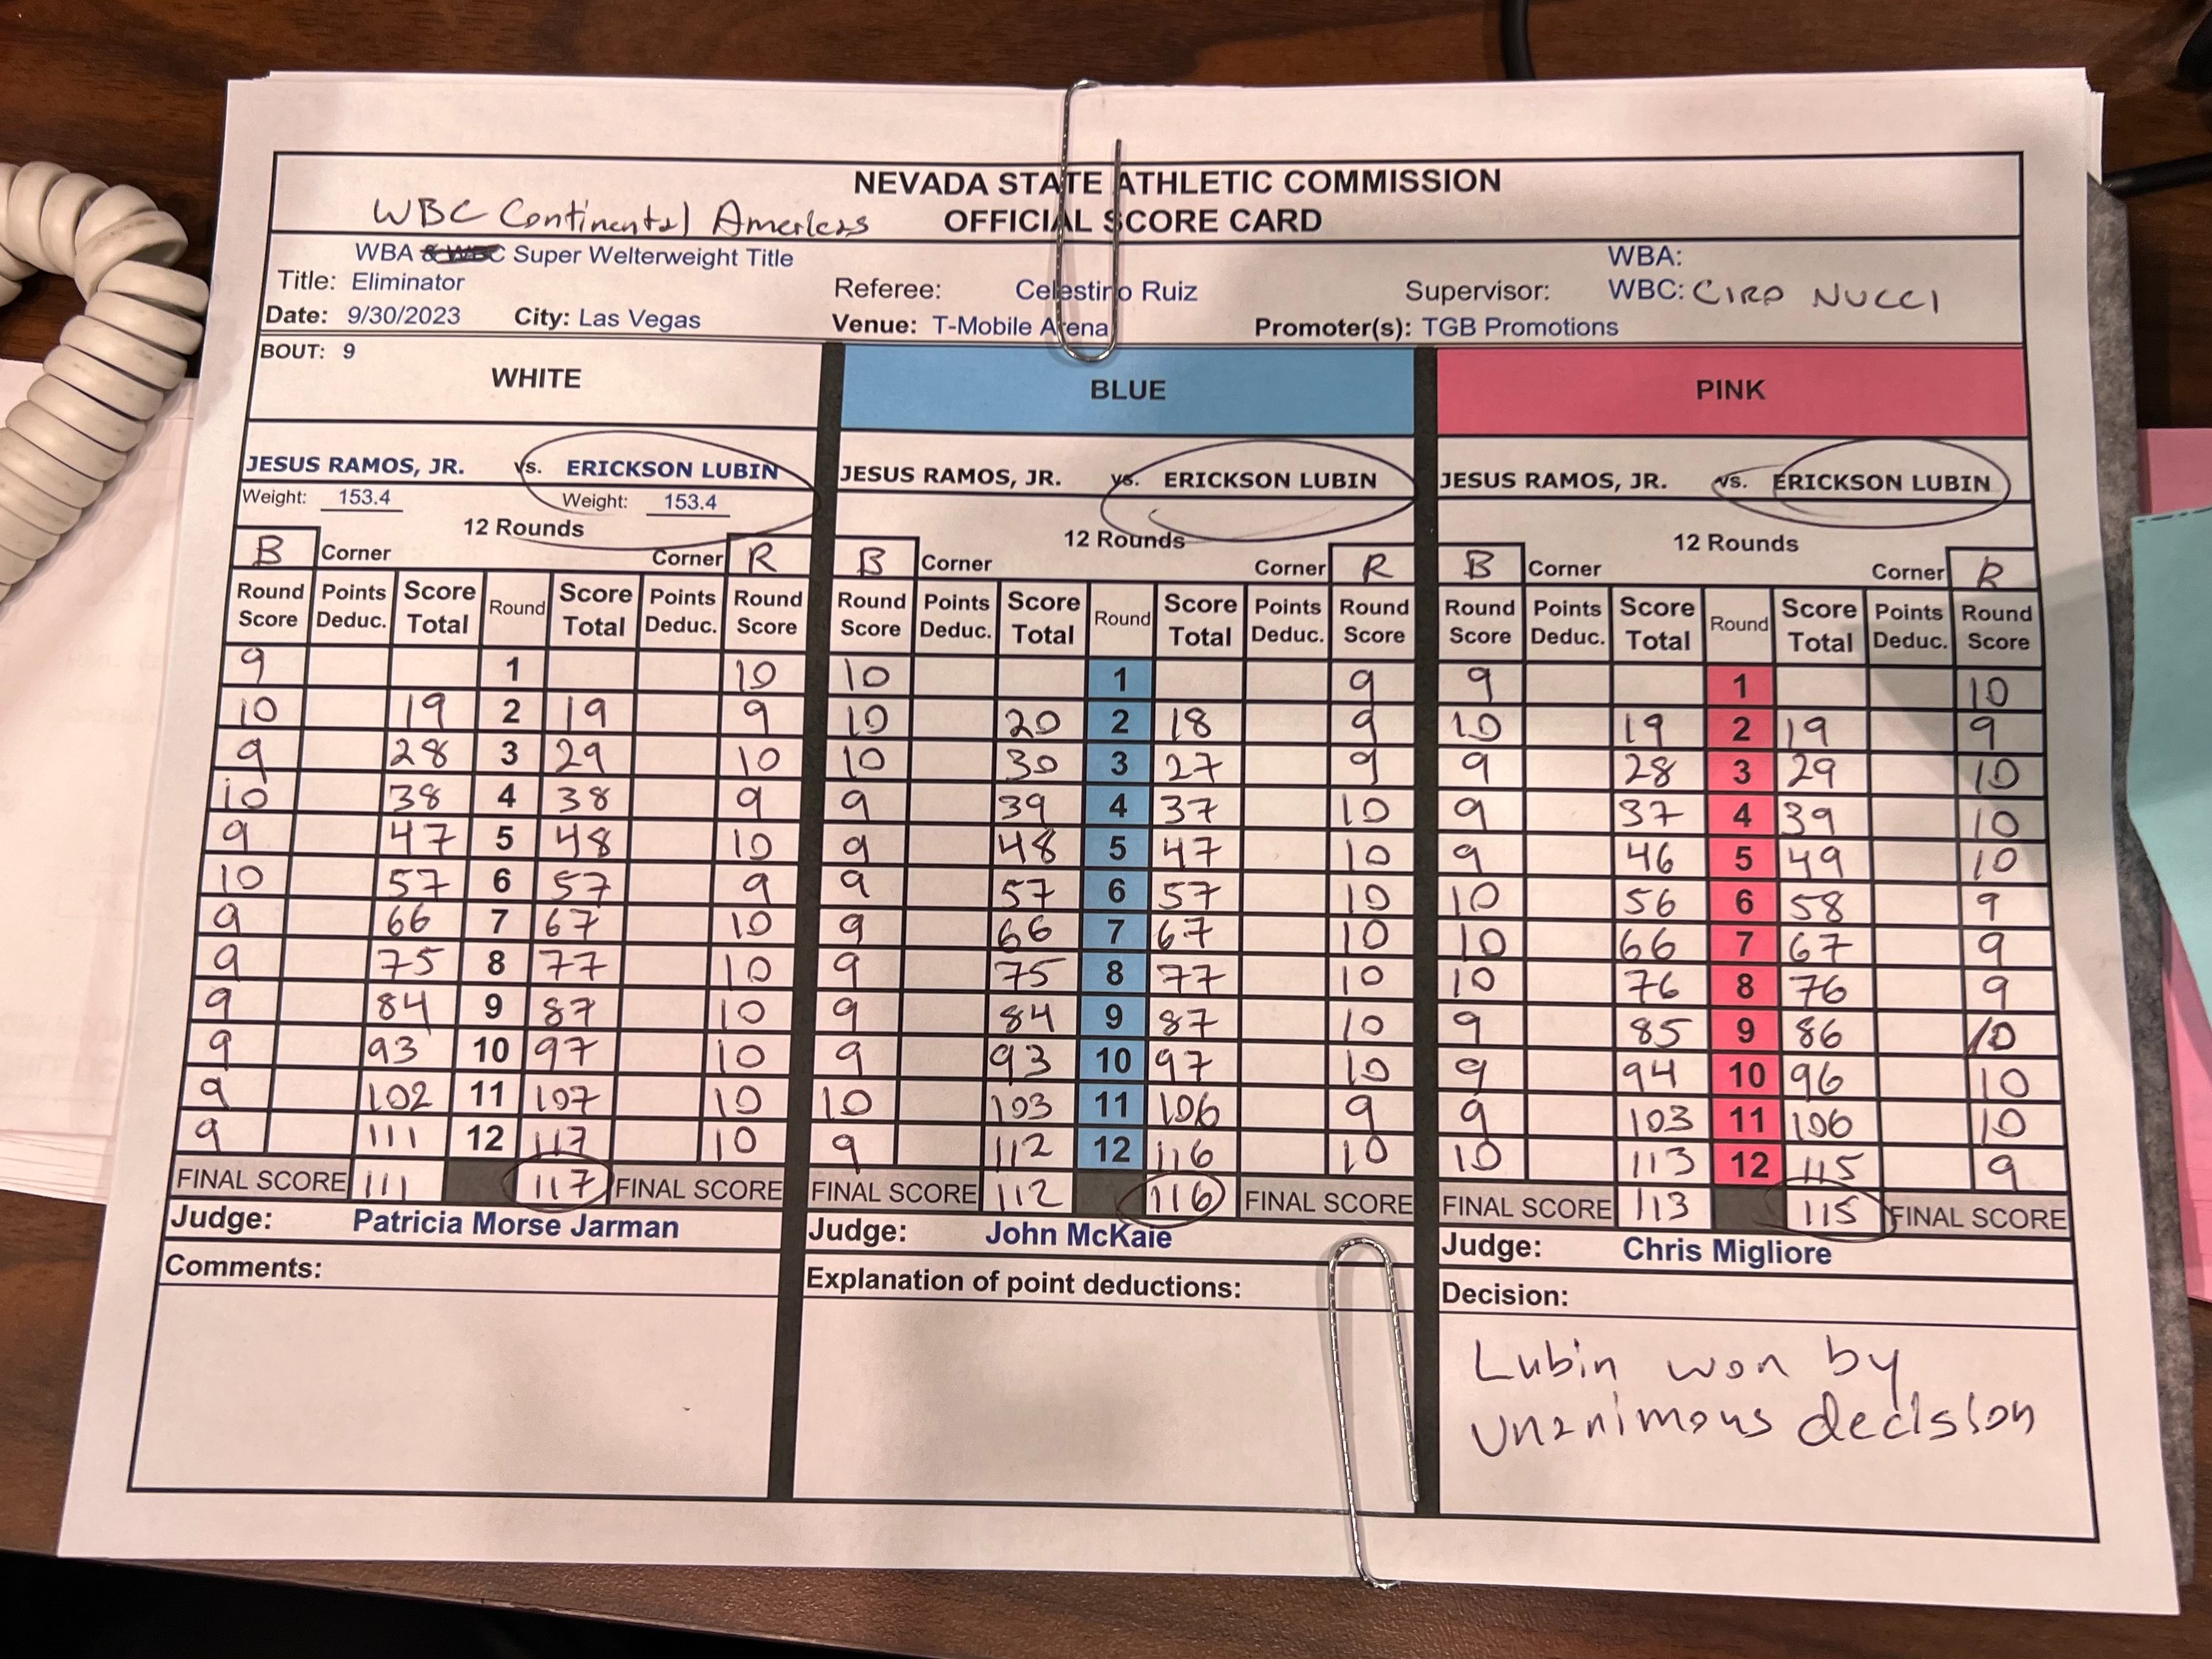 NEVADA STATE ATHLETIC COMMISSION
WBC Continental Americas OFFICIAL SCORE CARD
WBA & WBC Super Welterweight Title WBA:
Title: Eliminator Referee: Celestino Ruiz Supervisor: WBC: CIRO NUCCI
Date: 9/30/2023 City: Las Vegas Venue: T-Mobile Arena Promoter(s): TGB Promotions
BOUT: 9
WHITE BLUE PINK
JESUS RAMOS, JR. vs. ERICKSON LUBIN JESUS RAMOS, JR. vs. ERICKSON LUBIN JESUS RAMOS, JR. vs. ERICKSON LUBIN
Weight: 153.4 Weight: 153.4
12 Rounds 12 Rounds 12 Rounds
B Corner Corner R B Corner Corner R B Corner Corner R
Round Points Score Round Score Points Round Round Points Score Round Score Points Round Round Points Score Round Score Points Round
Score Deduc. Total Total Deduc. Score Score Deduc. Total Total Deduc. Score Score Deduc. Total Total Deduc. Score
9 1 10 10 1 9 9 1 10
10 19 2 19 9 10 20 2 18 9 10 19 2 19 9
9 28 3 29 10 10 30 3 27 9 9 28 3 29 10
10 38 4 38 9 9 39 4 37 10 9 37 4 39 10
9 47 5 48 10 9 48 5 47 10 9 46 5 49 10
10 57 6 57 9 9 57 6 57 10 10 56 6 58 9
9 66 7 67 10 9 66 7 67 10 10 66 7 67 9
9 75 8 77 10 9 75 8 77 10 10 76 8 76 9
9 84 9 87 10 9 84 9 87 10 9 85 9 86 10
9 93 10 97 10 9 93 10 97 10 9 94 10 96 10
9 102 11 107 10 10 103 11 106 9 9 103 11 106 10
9 111 12 117 10 9 112 12 116 10 10 113 12 115 9
FINAL SCORE 111 117 FINAL SCORE FINAL SCORE 112 116 FINAL SCORE FINAL SCORE 113 115 FINAL SCORE
Judge: Patricia Morse Jarman Judge: John McKaie Judge: Chris Migliore
Comments: Explanation of point deductions: Decision:
Lubin won by
unanimous decision